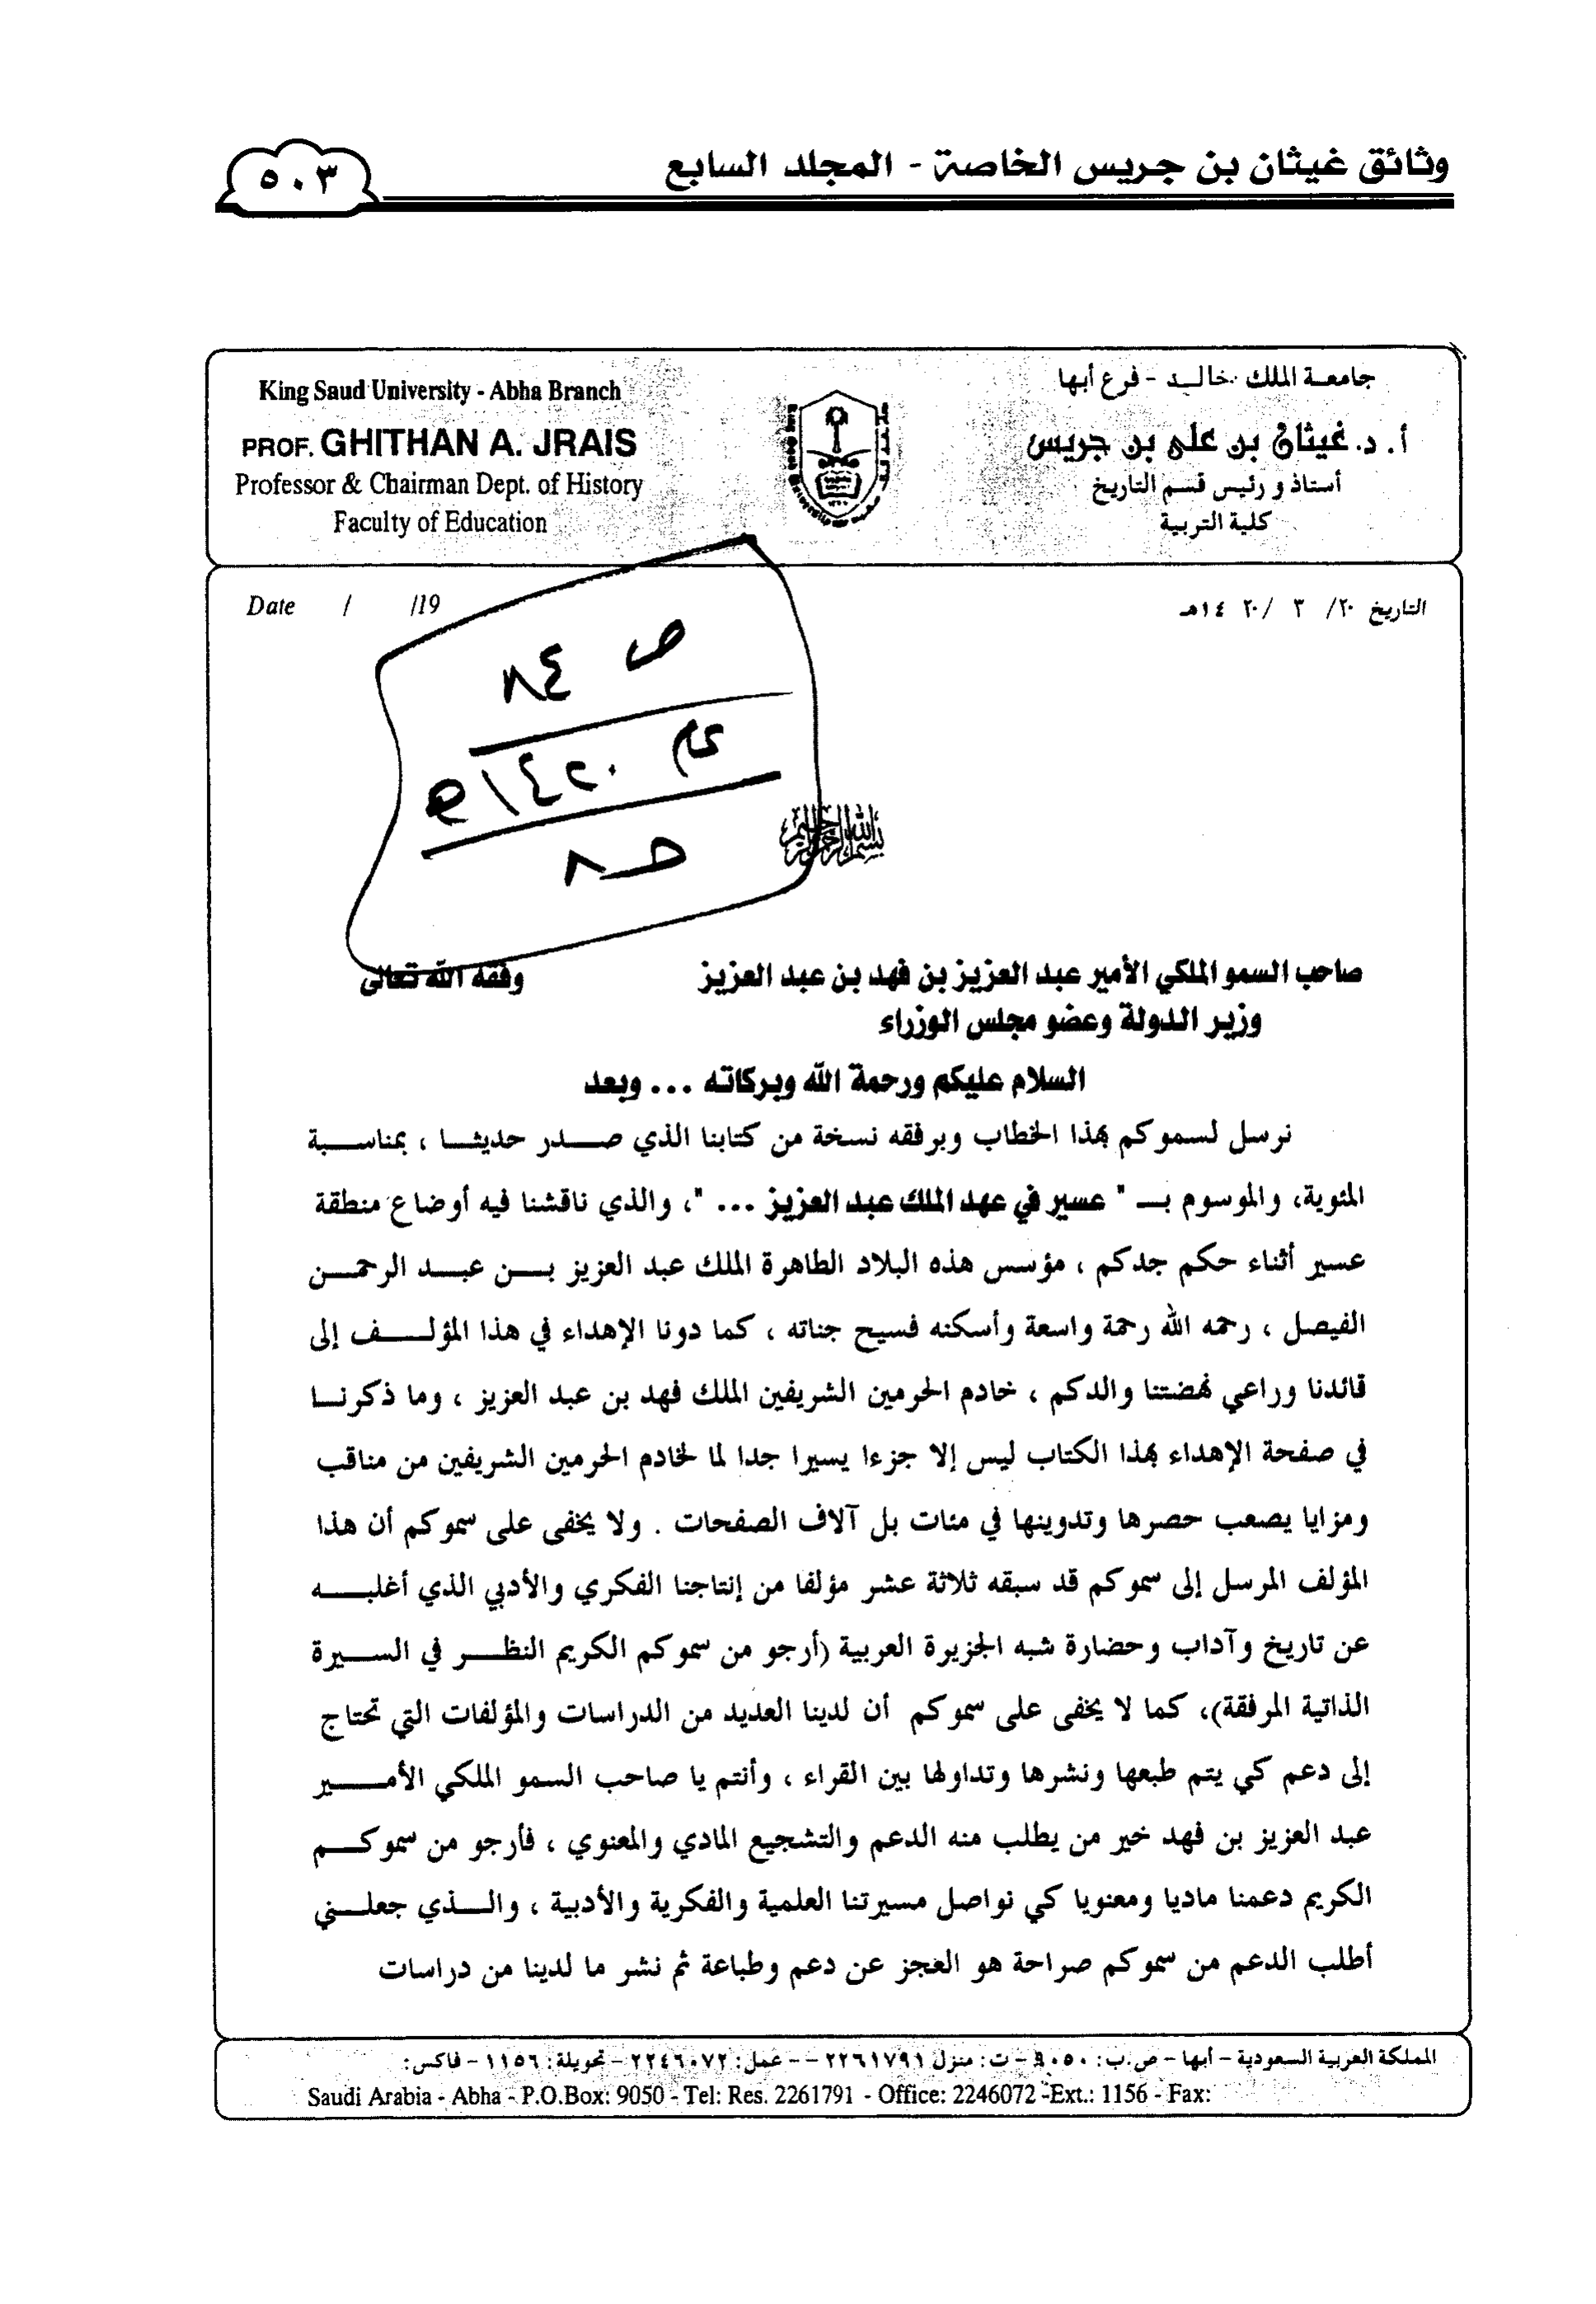 وثائق غيثان بن جريس الخاصة - المجلد السابع
٥٠٣
جامعة الملك خالد - فرع أبها
أ. د. غيثان بن علي بن جريس
أستاذ و رئيس قسم التاريخ
كلية التربية
King Saud University - Abha Branch
PROF. GHITHAN A. JRAIS
Professor & Chairman Dept. of History
Faculty of Education
التاريخ ٢٠/ ٣ /١٤٢٠هـ
Date / /19
ص ٨٤
عام ١٤٢٠هـ
حـ ٨
بسم الله الرحمن الرحيم
صاحب السمو الملكي الأمير عبد العزيز بن فهد بن عبد العزيز وفقه الله تعالى
وزير الدولة وعضو مجلس الوزراء
السلام عليكم ورحمة الله وبركاته ... وبعد
نرسل لسموكم بهذا الخطاب وبرفقه نسخة من كتابنا الذي صدر حديثا ، بمناسبة
المئوية، والموسوم بـ " عسير في عهد الملك عبد العزيز ... "، والذي ناقشنا فيه أوضاع منطقة
عسير أثناء حكم جدكم ، مؤسس هذه البلاد الطاهرة الملك عبد العزيز بن عبد الرحمن
الفيصل ، رحمه الله رحمة واسعة وأسكنه فسيح جناته ، كما دونا الإهداء في هذا المؤلف إلى
قائدنا وراعي نهضتنا والدكم ، خادم الحرمين الشريفين الملك فهد بن عبد العزيز ، وما ذكرنا
في صفحة الإهداء بهذا الكتاب ليس إلا جزءا يسيرا جدا لما لخادم الحرمين الشريفين من مناقب
ومزايا يصعب حصرها وتدوينها في مئات بل آلاف الصفحات . ولا يخفى على سموكم أن هذا
المؤلف المرسل إلى سموكم قد سبقه ثلاثة عشر مؤلفا من إنتاجنا الفكري والأدبي الذي أغلبه
عن تاريخ وآداب وحضارة شبه الجزيرة العربية (أرجو من سموكم الكريم النظر في السيرة
الذاتية المرفقة)، كما لا يخفى على سموكم أن لدينا العديد من الدراسات والمؤلفات التي تحتاج
إلى دعم كي يتم طبعها ونشرها وتداولها بين القراء ، وأنتم يا صاحب السمو الملكي الأمير
عبد العزيز بن فهد خير من يطلب منه الدعم والتشجيع المادي والمعنوي ، فأرجو من سموكم
الكريم دعمنا ماديا ومعنويا كي نواصل مسيرتنا العلمية والفكرية والأدبية ، والذي جعلني
أطلب الدعم من سموكم صراحة هو العجز عن دعم وطباعة ثم نشر ما لدينا من دراسات
المملكة العربية السعودية - أبها - ص.ب: ٩٠٥٠ - ت: منزل ٢٢٦١٧٩١ - - عمل: ٢٢٤٦٠٧٢ - تحويلة: ١١٥٦ - فاكس:
Saudi Arabia - Abha - P.O.Box: 9050 - Tel: Res. 2261791 - Office: 2246072 -Ext.: 1156 - Fax: